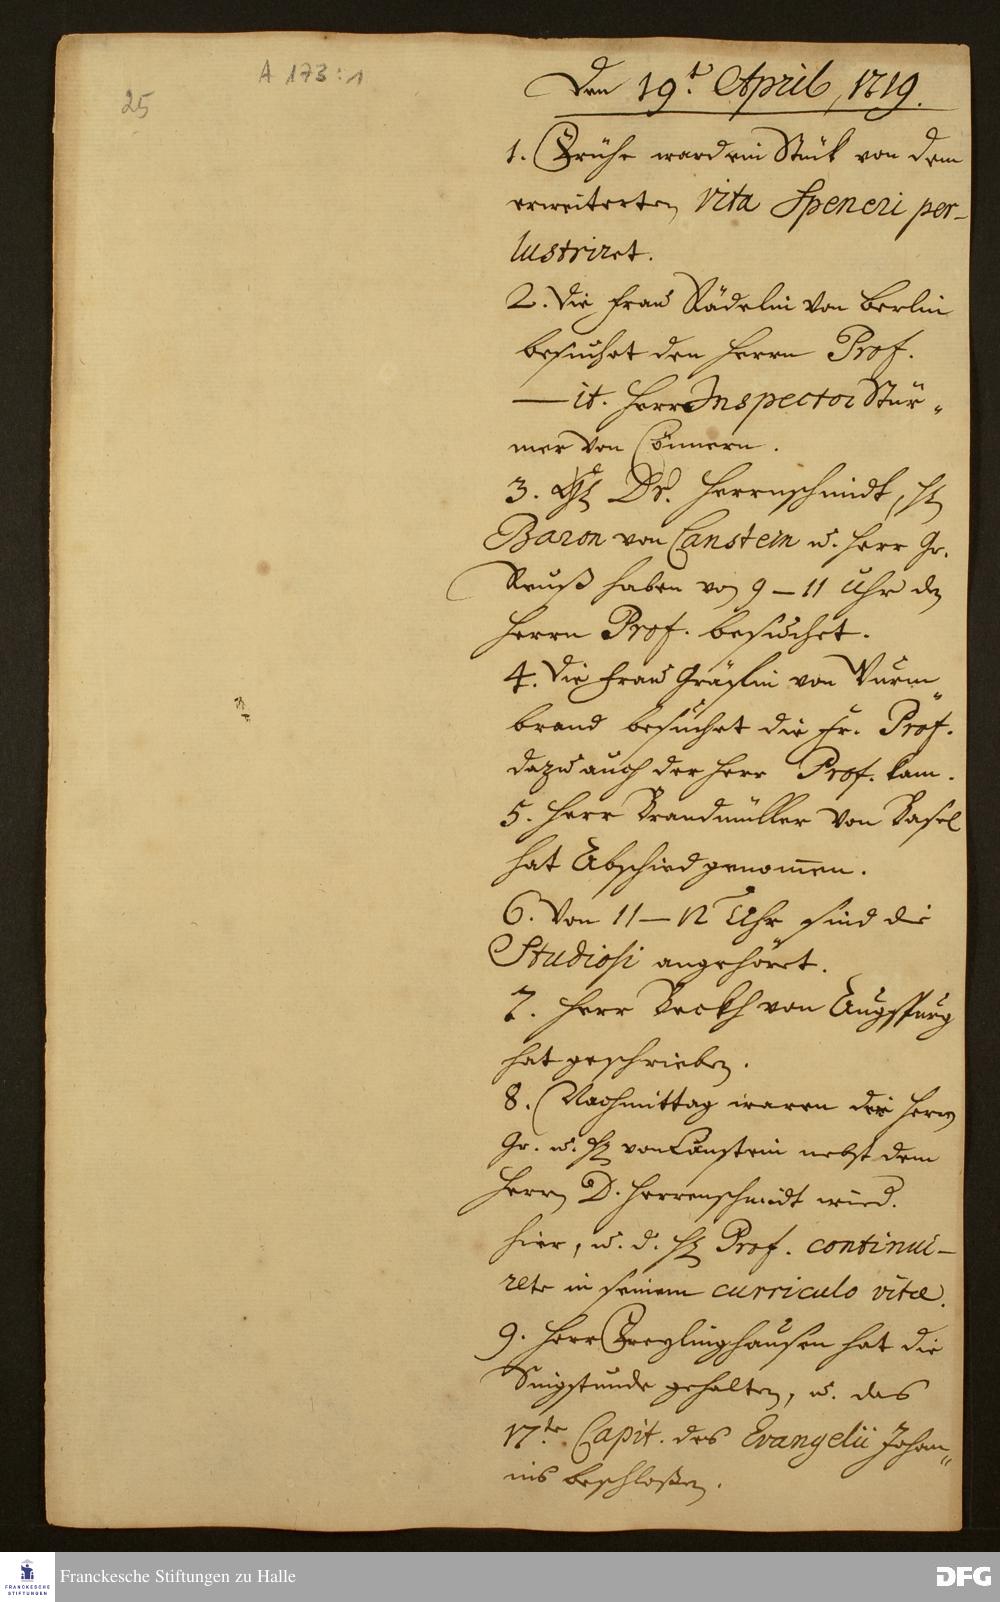 A 173:1
25
Den 19.t April, 1719.
1. Frühe ward ein Stük von dem
erweiterten Vita Speneri per-
lustriret.
2. Die Frau Rädelin von Berlin
besuchet den Herrn Prof.
— it. Herr Inspector Stür-
mer von Cönnern.
3. Dr. Herrnschmidt, H
Baron von Canstein u. Herr Gr.
Reuß haben von 9–11 Uhr den
Herrn Prof. besuchet.
4. Die Frau Gräffin von Wurm-
brand besuchet die Fr. Prof.
dazu auch der Herr Prof. kam.
5. Herr Brandmüller von Basel
hat Abschied genommen.
6. Von 11–12 Uhr sind die
Studiosi angehöret.
7. Herr Beckh von Augspurg
hat geschrieben.
8. Nachmittag waren die Herrn
Gr. u. H von Canstein nebst dem
Herrn D. Herrenschmidt wied.
hier, u. d. H Prof. continui-
rete in seinem curriculo vitæ.
9. Herr Freylinghausen hat die
Singstunde gehalten, u. das
17.te Capit. des Evangelii Johan-
nis beschloßen.
FRANCKESCHE
STIFTUNGEN
Franckesche Stiftungen zu Halle
DFG